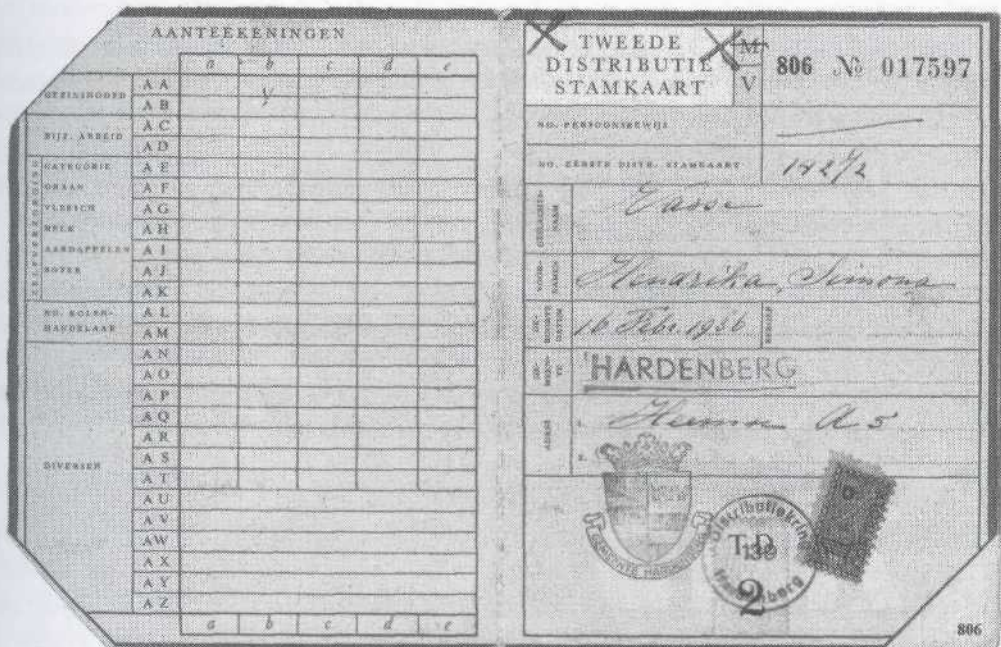 AANTEEKENINGEN
a b c d e
GEZINSHOOFD
AA
AB y
BIJZ. ARBEID
AC
AD
ZELFVERZORGING
CATEGORIE
GRAAN
VLEESCH
MELK
AARDAPPELEN
BOTER
AE
AF
AG
AH
AI
AJ
AK
NO. KOLEN-
HANDELAAR
AL
AM
DIVERSEN
AN
AO
AP
AQ
AR
AS
AT
AU
AV
AW
AX
AY
AZ
a b c d e
TWEEDE
DISTRIBUTIE
STAMKAART
M
V
806 No 017597
NO. PERSOONSBEWIJS
NO. EERSTE DISTR. STAMKAART
GESLACHTS-
NAAM
VOOR-
NAMEN
Hendrika, Simona
GE-
BOORTE
DATUM
16 Febr.
BEROEP
GE-
MEEN-
TE
HARDENBERG
ADRES
1.
A 5
2.
GEMEENTE HARDENBERG
Distributiekring
T.D.
139
Hardenberg
2
D
806